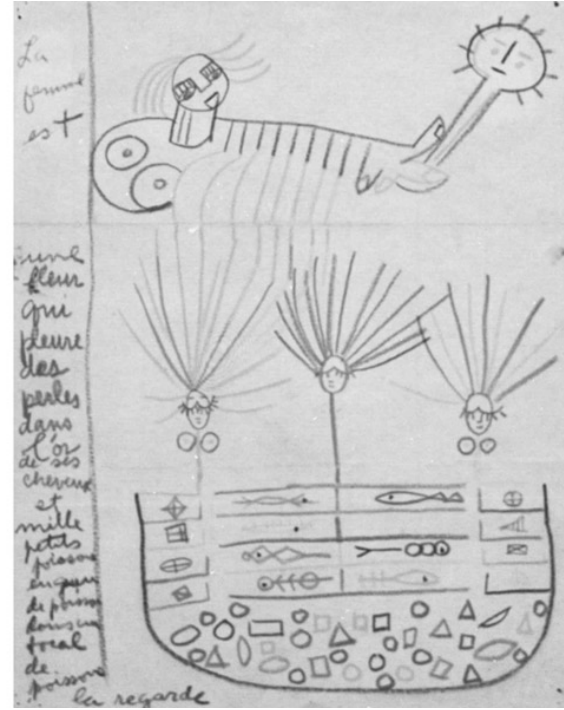 La
femme
est
une
fleur
qui
pleure
des
perles
dans
l'or
de ses
cheveux
et
mille
petits
poissons
en guise
de poisson
dans un
bocal
de
poissons
la regarde